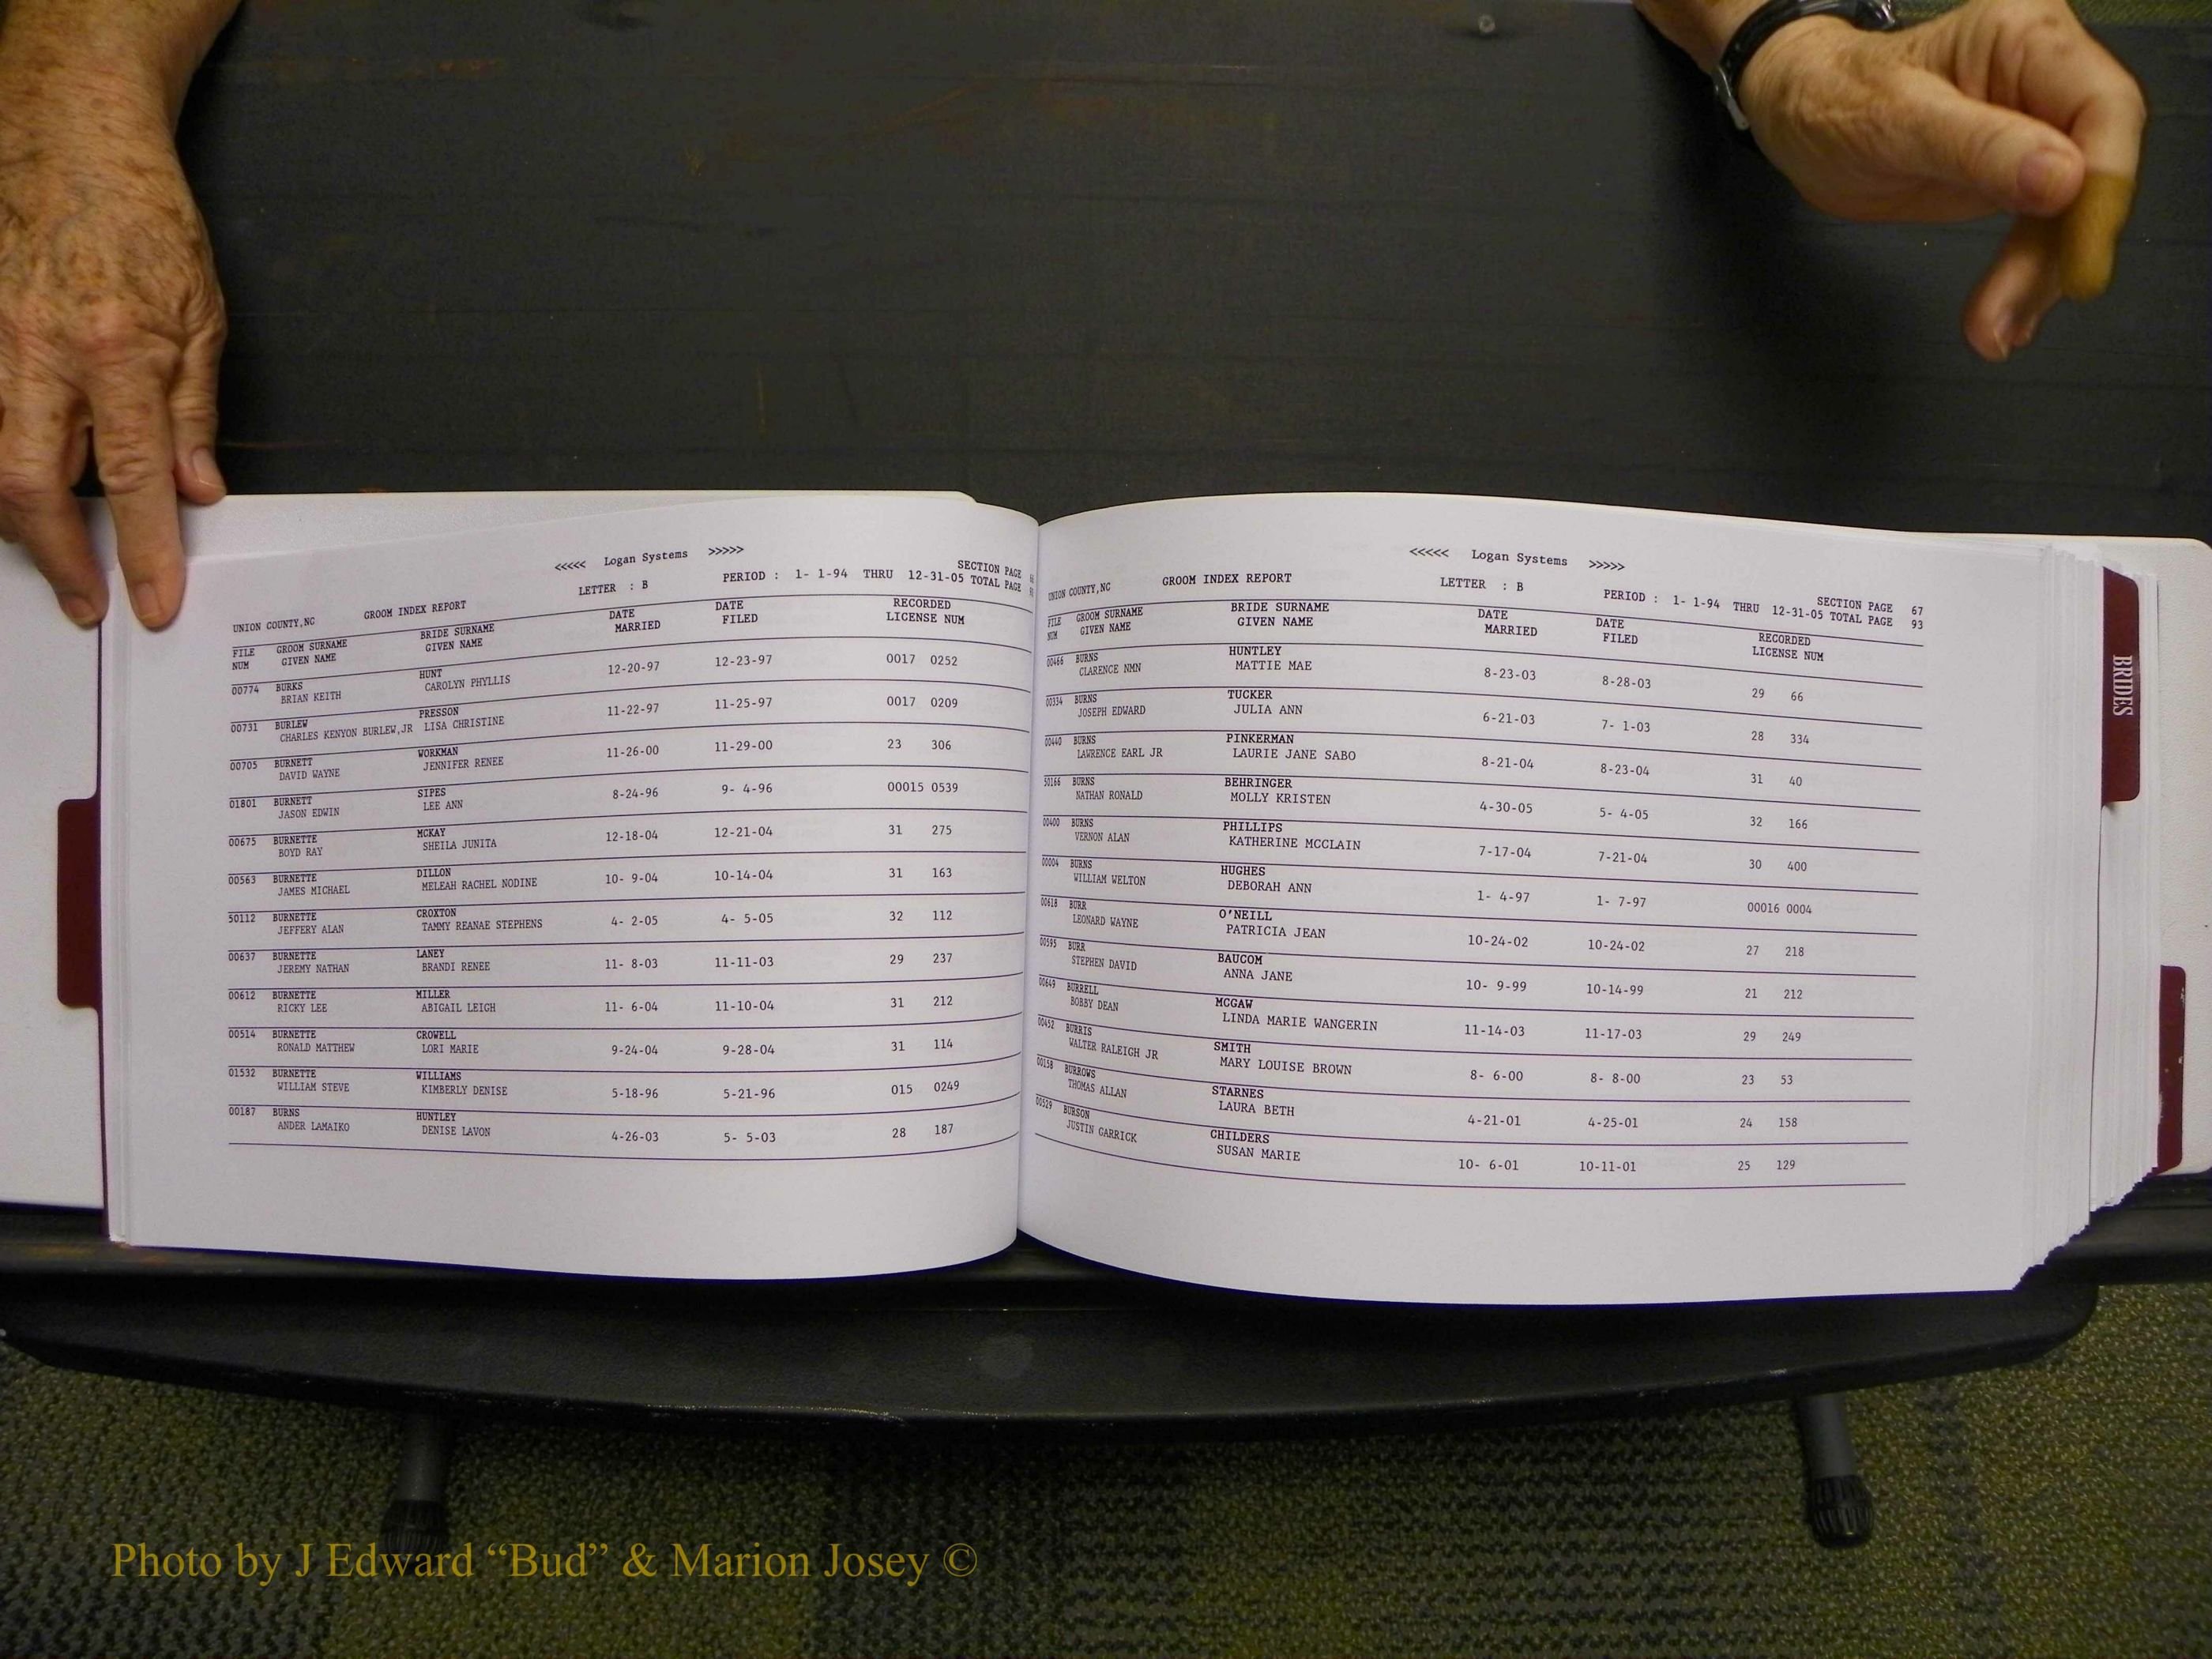 <<<<< Logan Systems >>>>>
SECTION PAGE
LETTER : B PERIOD : 1- 1-94 THRU 12-31-05 TOTAL PAGE
UNION COUNTY,NC GROOM INDEX REPORT
FILE GROOM SURNAME BRIDE SURNAME DATE DATE RECORDED
NUM GIVEN NAME GIVEN NAME MARRIED FILED LICENSE NUM
00774 BURKS HUNT 12-20-97 12-23-97 0017 0252
BRIAN KEITH CAROLYN PHYLLIS
00731 BURLEW PRESSON 11-22-97 11-25-97 0017 0209
CHARLES KENYON BURLEW,JR LISA CHRISTINE
00705 BURNETT WORKMAN 11-26-00 11-29-00 23 306
DAVID WAYNE JENNIFER RENEE
01801 BURNETT SIPES 8-24-96 9- 4-96 00015 0539
JASON EDWIN LEE ANN
00675 BURNETTE MCKAY 12-18-04 12-21-04 31 275
BOYD RAY SHEILA JUNITA
00563 BURNETTE DILLON 10- 9-04 10-14-04 31 163
JAMES MICHAEL MELEAH RACHEL NODINE
50112 BURNETTE CROXTON 4- 2-05 4- 5-05 32 112
JEFFERY ALAN TAMMY REANAE STEPHENS
00637 BURNETTE LANEY 11- 8-03 11-11-03 29 237
JEREMY NATHAN BRANDI RENEE
00612 BURNETTE MILLER 11- 6-04 11-10-04 31 212
RICKY LEE ABIGAIL LEIGH
00514 BURNETTE CROWELL 9-24-04 9-28-04 31 114
RONALD MATTHEW LORI MARIE
01532 BURNETTE WILLIAMS 5-18-96 5-21-96 015 0249
WILLIAM STEVE KIMBERLY DENISE
00187 BURNS HUNTLEY 4-26-03 5- 5-03 28 187
ANDER LAMAIKO DENISE LAVON
<<<<< Logan Systems >>>>>
SECTION PAGE 67
UNION COUNTY,NC GROOM INDEX REPORT LETTER : B PERIOD : 1- 1-94 THRU 12-31-05 TOTAL PAGE 93
FILE GROOM SURNAME BRIDE SURNAME DATE DATE RECORDED
NUM GIVEN NAME GIVEN NAME MARRIED FILED LICENSE NUM
00466 BURNS HUNTLEY 8-23-03 8-28-03 29 66
CLARENCE NMN MATTIE MAE
00334 BURNS TUCKER 6-21-03 7- 1-03 28 334
JOSEPH EDWARD JULIA ANN
00440 BURNS PINKERMAN 8-21-04 8-23-04 31 40
LAWRENCE EARL JR LAURIE JANE SABO
50166 BURNS BEHRINGER 4-30-05 5- 4-05 32 166
NATHAN RONALD MOLLY KRISTEN
00400 BURNS PHILLIPS 7-17-04 7-21-04 30 400
VERNON ALAN KATHERINE MCCLAIN
00004 BURNS HUGHES 1- 4-97 1- 7-97 00016 0004
WILLIAM WELTON DEBORAH ANN
00618 BURR O'NEILL 10-24-02 10-24-02 27 218
LEONARD WAYNE PATRICIA JEAN
00595 BURR BAUCOM 10- 9-99 10-14-99 21 212
STEPHEN DAVID ANNA JANE
00649 BURRELL MCGAW 11-14-03 11-17-03 29 249
BOBBY DEAN LINDA MARIE WANGERIN
00452 BURRIS SMITH 8- 6-00 8- 8-00 23 53
WALTER RALEIGH JR MARY LOUISE BROWN
00158 BURROWS STARNES 4-21-01 4-25-01 24 158
THOMAS ALLAN LAURA BETH
00529 BURSON CHILDERS 10- 6-01 10-11-01 25 129
JUSTIN GARRICK SUSAN MARIE
BRIDES
Photo by J Edward “Bud” & Marion Josey ©